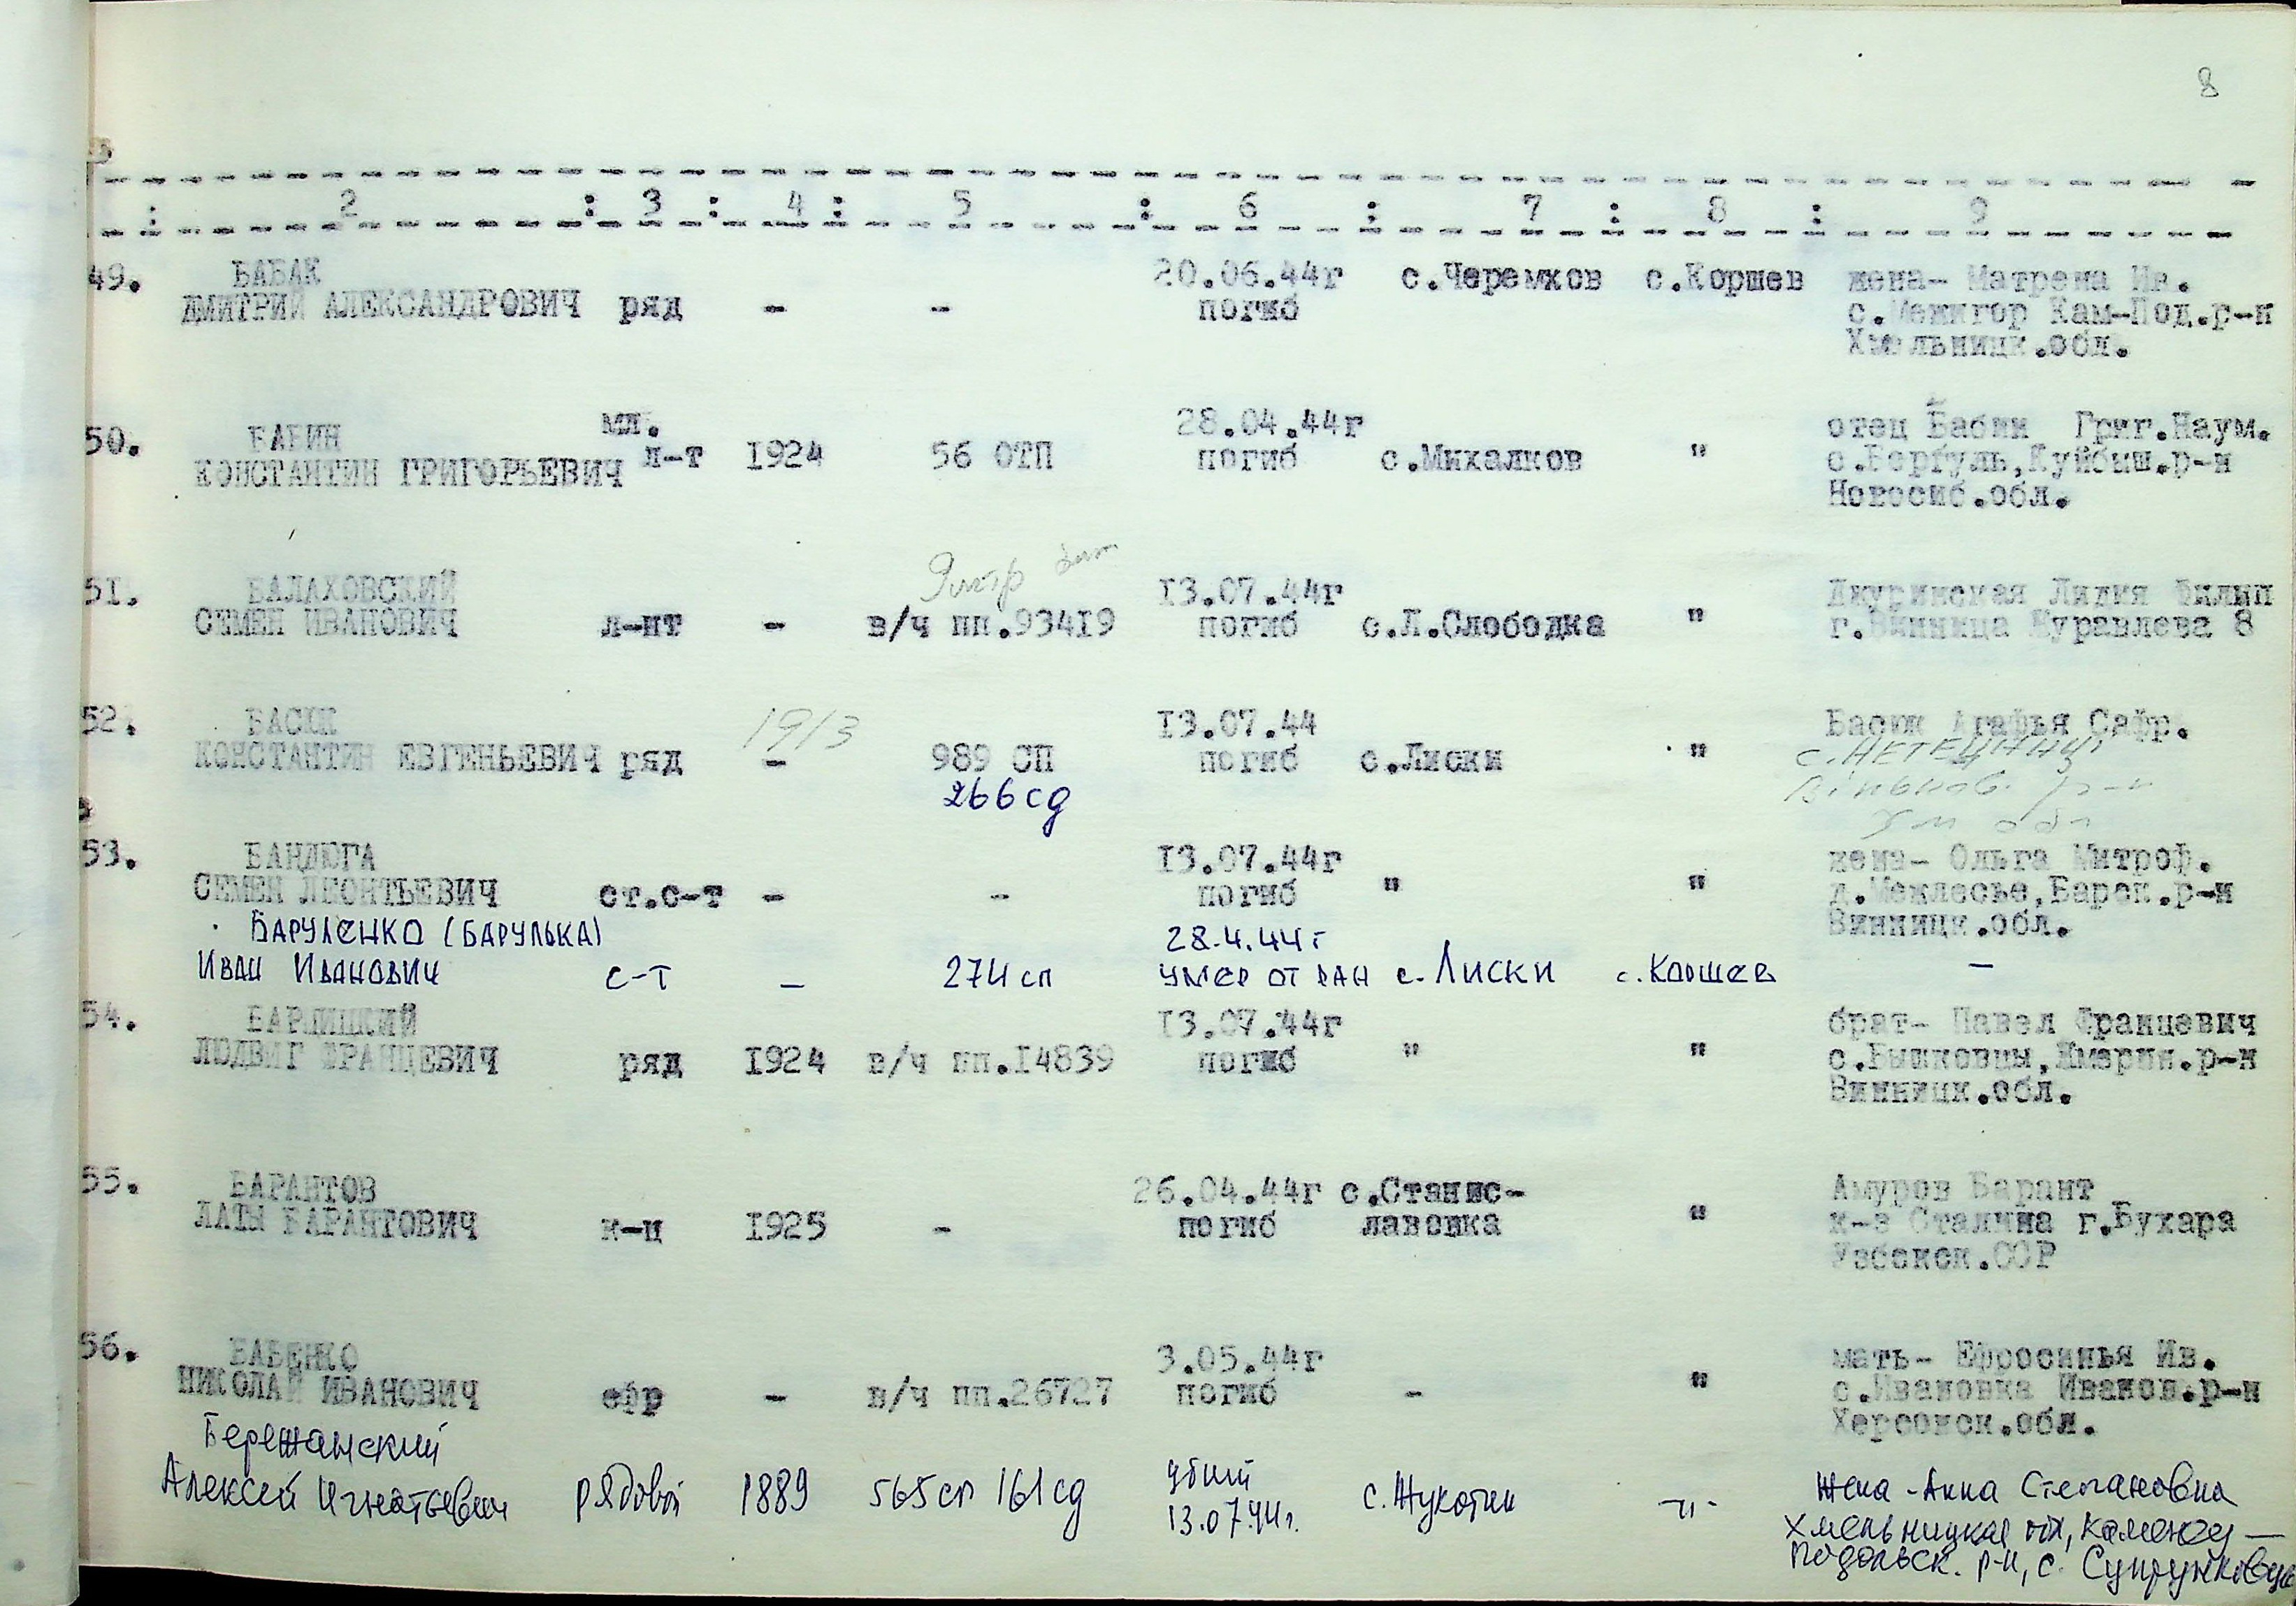 8
2 : 3 : 4 : 5 : 6 : 7 : 8 : 9
49. БАБАК 20.06.44г с.Черемхов с.Коршев жена- Матрена Ив.
ДМИТРИЙ АЛЕКСАНДРОВИЧ ряд - - погиб с.Межигор Кам-Под.р-н
Хмельницк.обл.
50. БАБИН мл. 28.04.44г отец Бабин Григ.Наум.
КОНСТАНТИН ГРИГОРЬЕВИЧ л-т 1924 56 ОТП погиб с.Михалков " с.Бергуль,Куйбыш.р-н
Новосиб.обл.
51. БАЛАХОВСКИЙ 13.07.44г Джуринская Лидия Филип
СЕМЕН ИВАНОВИЧ л-нт - в/ч пп.93419 погиб с.Л.Слободка " г.Винница Журавлева 8
52. БАСЮК 1913 13.07.44 Басюк Агафья Сафр.
КОНСТАНТИН ЕВГЕНЬЕВИЧ ряд - 989 СП погиб с.Лиски " с.НЕТЕЧИНЦІ
266 сд р-н
обл
53. БАНДЮГА 13.07.44г жена- Ольга Митроф.
СЕМЕН ЛЕОНТЬЕВИЧ ст.с-т - - погиб " " д.Межлесье,Барск.р-н
Винницк.обл.
БАРУЛЕНКО (БАРУЛЬКА) 28.4.44г
ИВАН ИВАНОВИЧ с-т - 274 сп УМЕР ОТ РАН с. Лиски с. КОРШЕВ -
54. БАРЛИЦКИЙ 13.07.44г брат- Павел Францевич
ЛЮДВИГ ФРАНЦЕВИЧ ряд 1924 в/ч пп.14839 погиб " " с.Быковцы,Жмерин.р-н
Винницк.обл.
55. БАРАНТОВ 26.04.44г с.Станис- Амуров Барант
ЛАТЫ БАРАНТОВИЧ к-ц 1925 - погиб лавовка " к-з Сталина г.Бухара
Узбекск.ССР
56. БАБЕНКО 3.05.44г мать- Ефросинья Ив.
НИКОЛАЙ ИВАНОВИЧ ефр - в/ч пп.26727 погиб - " с.Ивановка Иванов.р-н
Херсонск.обл.
Бережанский убит Жена - Анна Степановна
Алексей Игнатьевич рядовой 1889 565 сп 161 сд 13.07.44г. с. Жукотин -"- Хмельницкая обл, Каменец-
Подольск. р-н, с. Супрунковцы